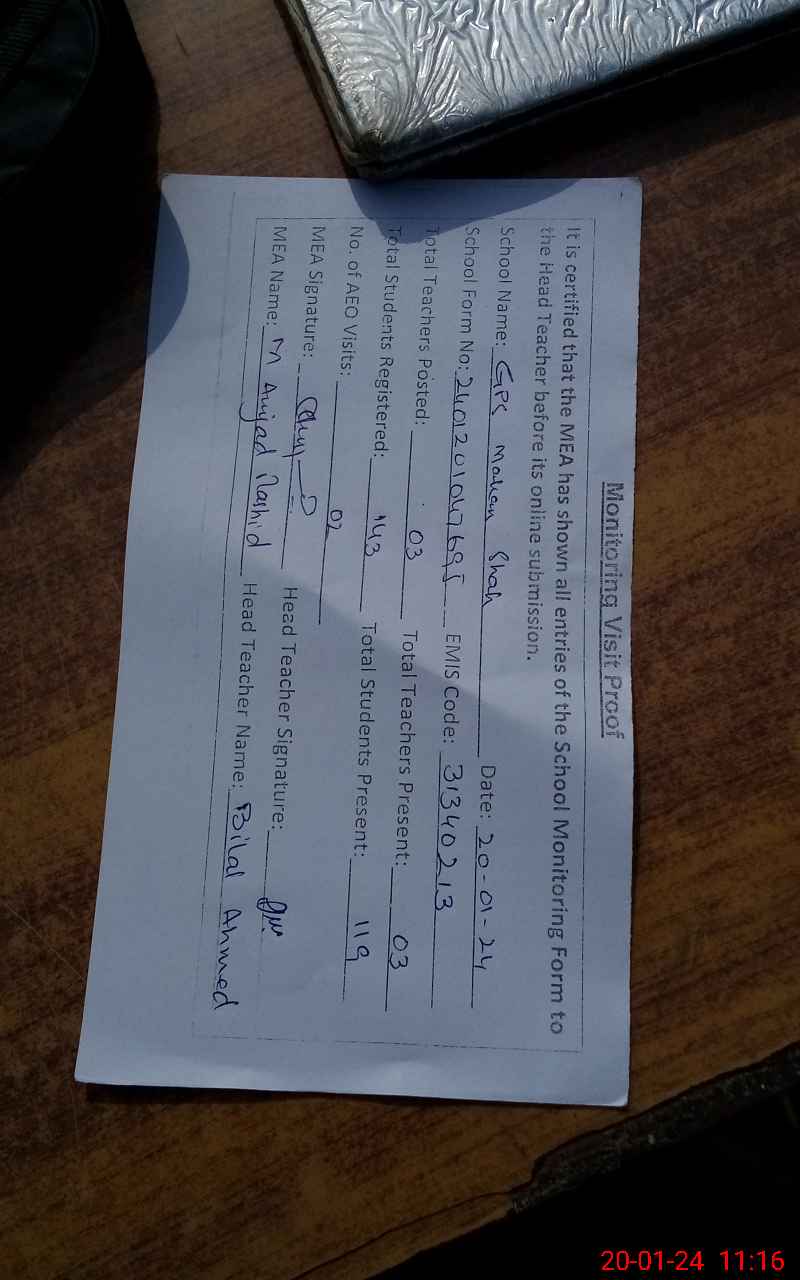 Monitoring Visit Proof
It is certified that the MEA has shown all entries of the School Monitoring Form to
the Head Teacher before its online submission.
School Name: GPS Maken Shah Date: 20-01-24
School Form No: 2401201047695 EMIS Code: 31340213
Total Teachers Posted: 03 Total Teachers Present: 03
Total Students Registered: 143 Total Students Present: 119
No. of AEO Visits: 02
MEA Signature: Head Teacher Signature:
MEA Name: M Amjad Rashid Head Teacher Name: Bilal Ahmed
20-01-24 11:16